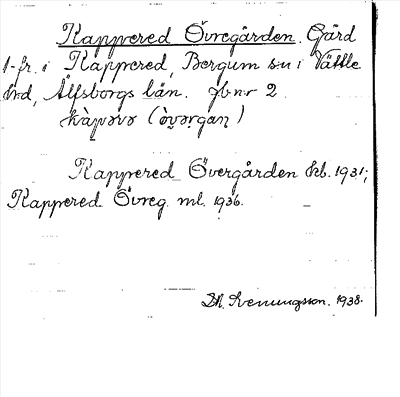 Kappered Övregården. Gård
1-fr. i Kappered, Bergum sn i Vättle
hrd, Älfsborgs län. jbnr 2.
kàpərə (ò̤vərgan̥)
Kappered Övergården kb. 1931;
Kappered Övreg. ml. 1936.
D. Svenungsson. 1938.